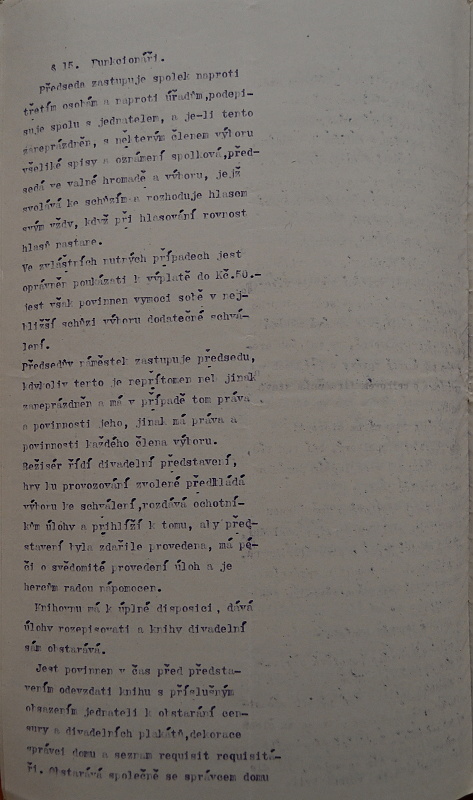 § 15. Funkcionáři.
Předseda zastupuje spolek naproti
třetím osobám a naproti úřadům,podepi-
suje spolu s jednatelem, a je-li tento
zaneprázdněn, s některým členem výboru
všeliké spisy a oznámení spolková,před-
sedá ve valné hromadě a výboru, jejž
svolává ke schůzím a rozhoduje hlasem
svým vždy, když při hlasování rovnost
hlasů nastane.
Ve zvláštních nutných případech jest
oprávněn poukázati k výplatě do Kč.50.-
jest však povinnen vymoci sobě v nej-
bližší schůzi výboru dodatečné schvá-
lení.
Předsedův náměstek zastupuje předsedu,
kdykoliv tento je nepřítomen neb jinak
zaneprázdněn a má v případě tom práva
a povinnosti jeho, jinak má práva a
povinnosti každého člena výboru.
Režisér řídí divadelní představení,
hry ku provozování zvolené předkládá
výboru ke schválení,rozdává ochotní-
kům úlohy a přihlíží k tomu, aby před-
stavení byla zdařile provedena, má pé-
či o svědomité provedení úloh a je
hercům radou nápomocen.
Knihovnu má k úplné disposici, dává
úlohy rozepisovati a knihy divadelní
sám obstarává.
Jest povinnen v čas před předsta-
vením odevzdati knihu s příslušným
obsazením jednateli k obstarání cen-
sury a divadelních plakátů,dekorace
správci domu a seznam requisit requisitá-
ři. Obstarává společně se správcem domu